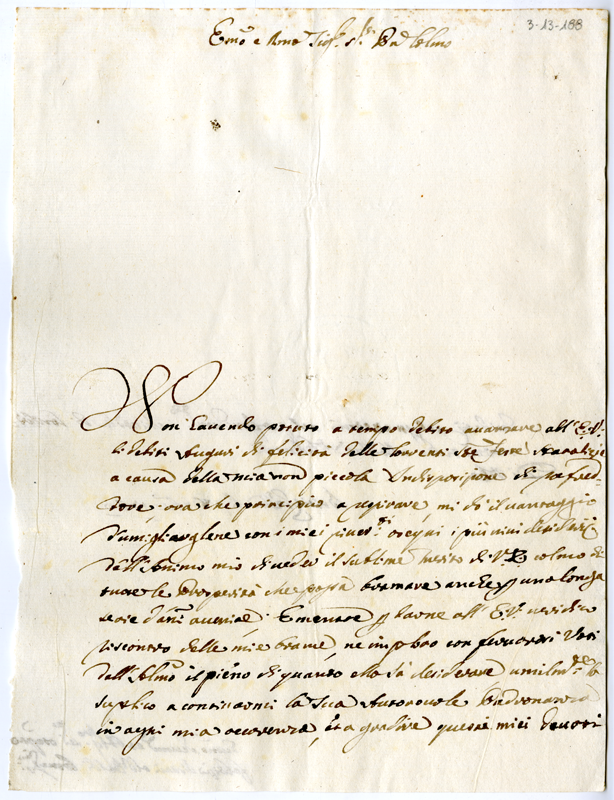 3-13-188
Emo e Rmo Sigr Pad Colmo
Non havendo potuto a tempo debito avanzare all' E.V.
li debiti Augurj di felicità delle correnti Ste Feste Natalizie
a causa della mia non piccola Indisposizione di
ora che principio a respirare, mi dò il vantaggio
d'umigliarglene con i miei osequi i più vivi
dall' Animo mio di vedere il sublime merito di V. E. colmo di
tutte le Prosperità che possa bramare anche p una longa
serie d'anni E mentre p farne all' E.V. veridico
riscontro delle mie brame, ne imploro con fervorosi Voti
dall' Almo il pieno di quanto ella sà desiderare, umilmte la
suplico a continuarmi la Sua Autorevole Padronanza
in ogni mia occorenza, et a gradire questi miei